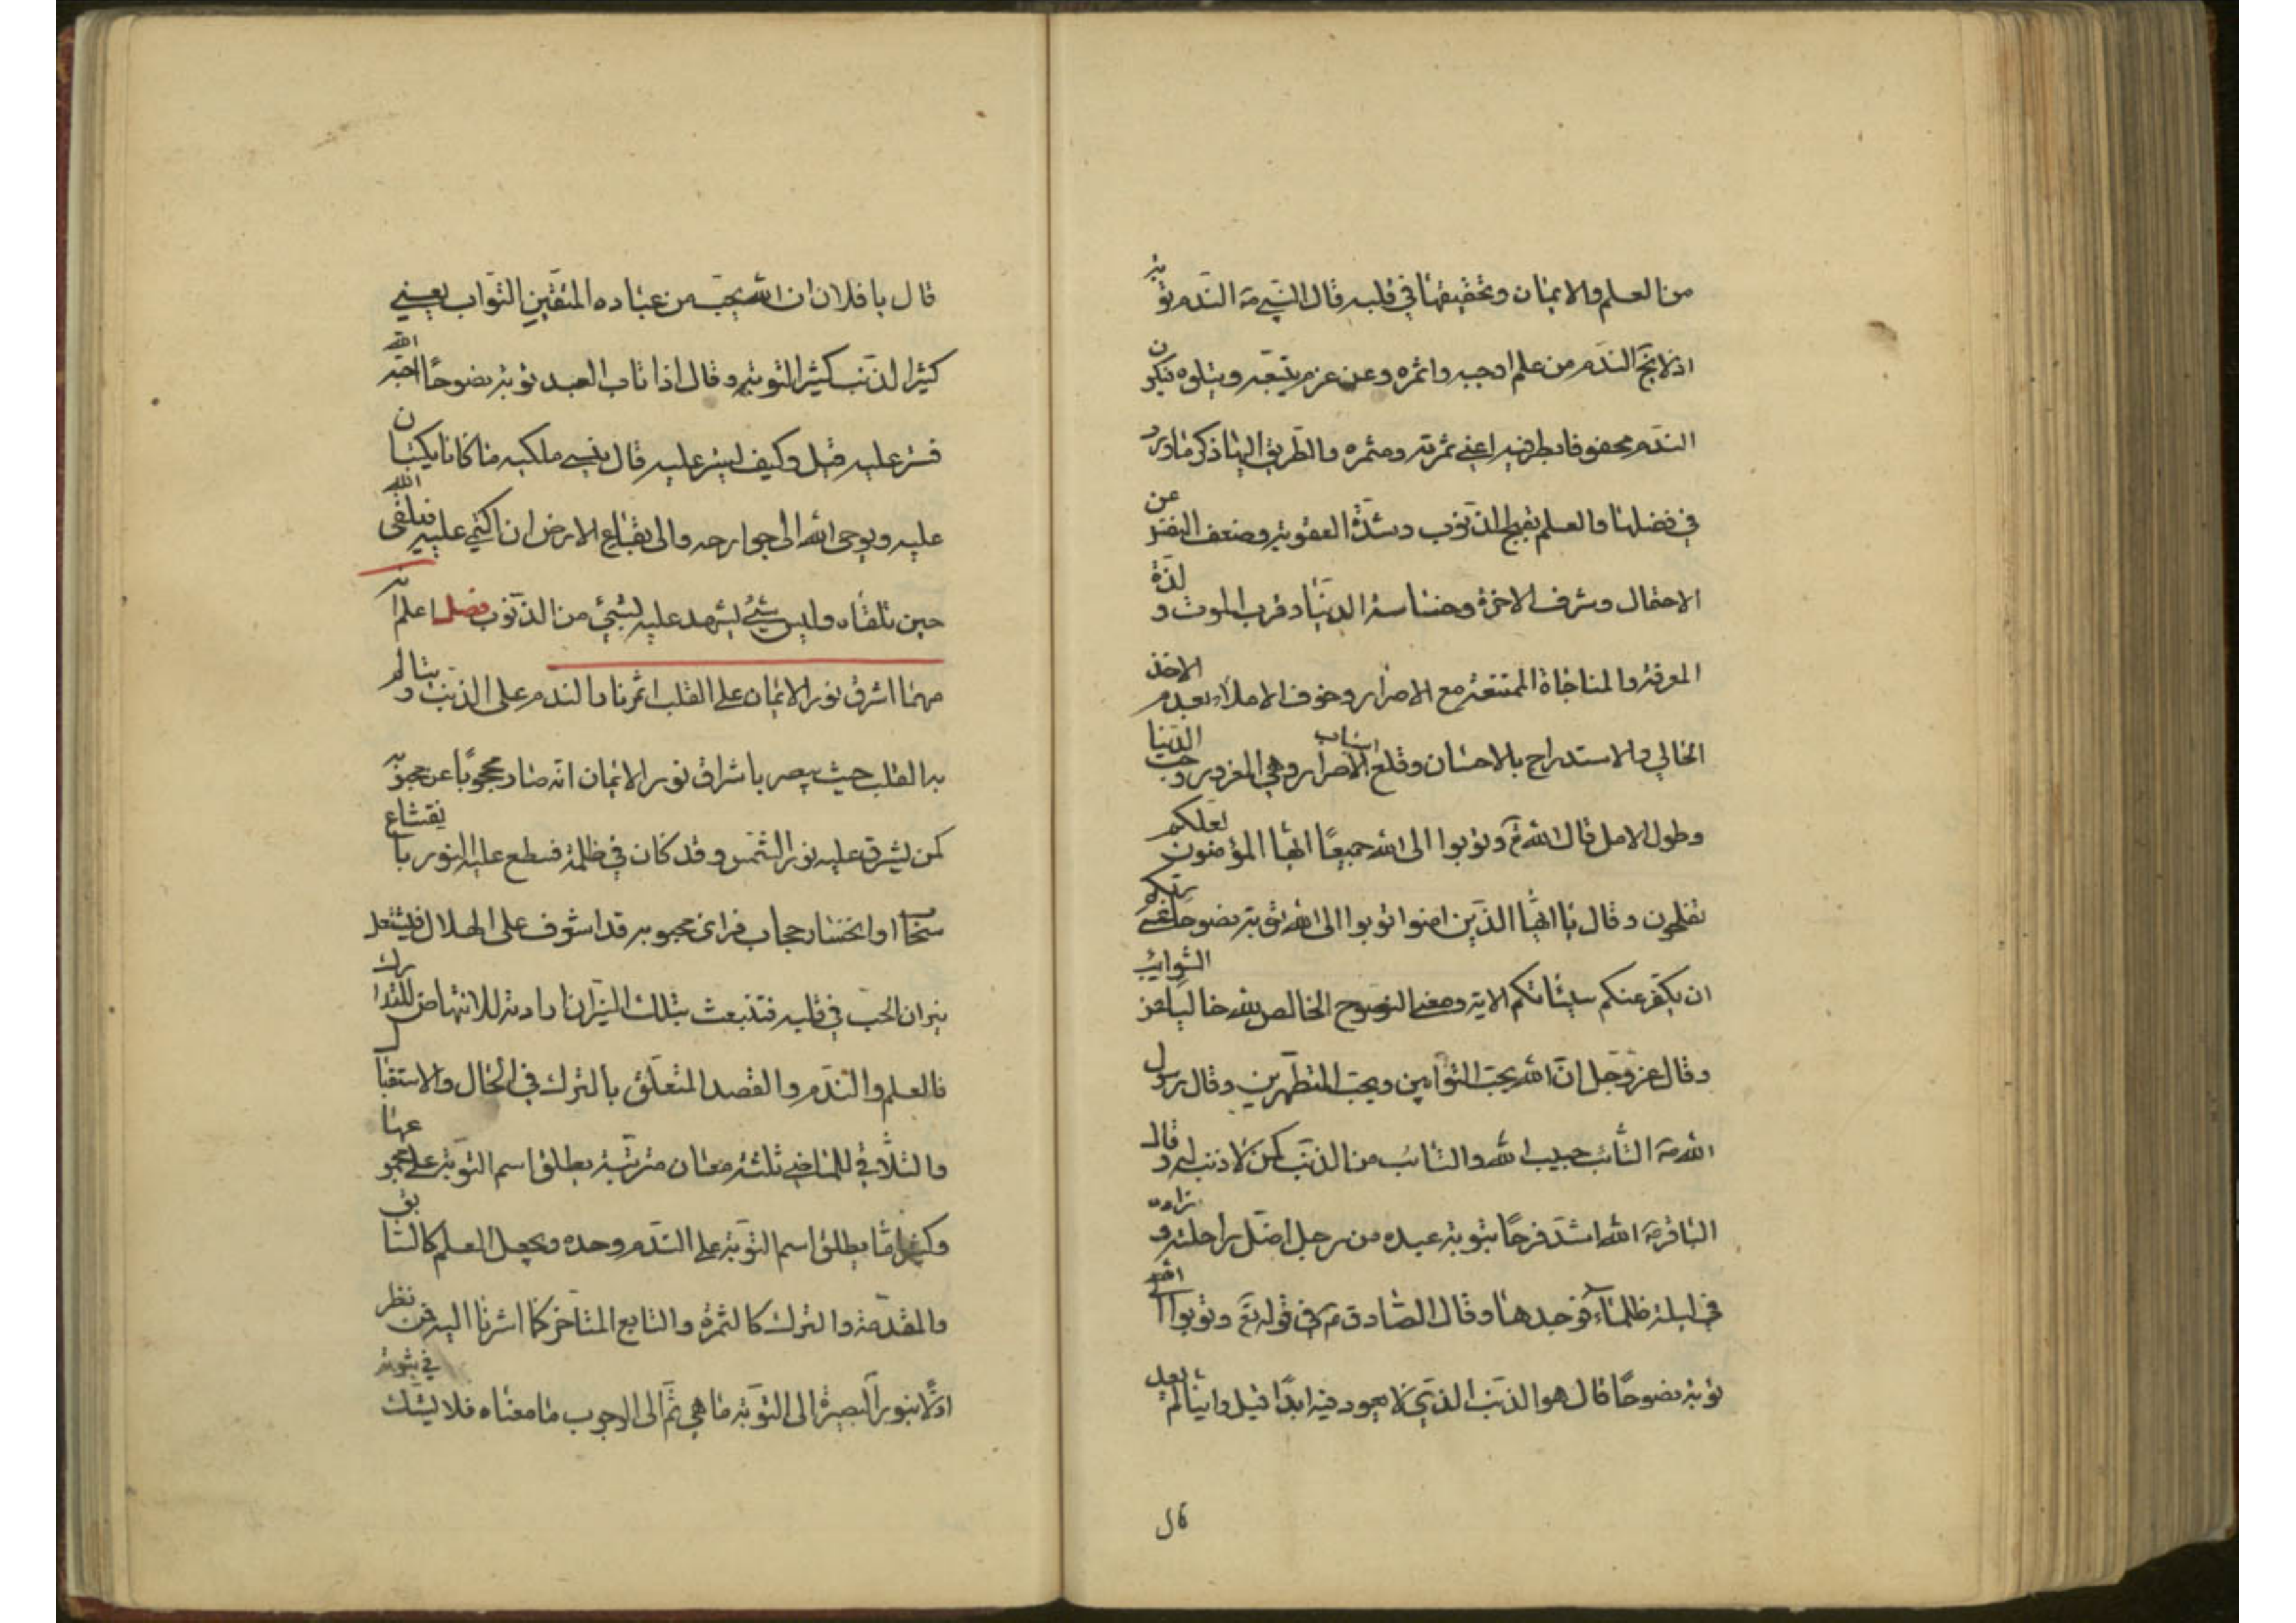 من العلم والايمان وتحقيقها في قلبه قال النبي ص الندم توبة
اذ لا يخ الندم من علم اوجبه واثمره وعن عزم يتبعه ويتلوه فيكون
الندم محفوفا بطرفيه اعني ثمرته ومثمره والطريق اليها ذكر ما ورد
في فضلها والعلم بقبح الذنوب وشدة العقوبة وضعف النفس عن
الاحتمال وشرف الاخرة وخساسة الدنيا وقرب الموت ولذة
المعرفة والمناجاة الممتنعة مع الاصرار وخوف الاملاء بعدم الاخذ
الحالي والاستدراج بالاحسان وقلع اسباب الاصرار وهي الغرور وحب الدنيا
وطول الامل قال الله تع وتوبوا الى الله جميعا ايها المؤمنون لعلكم
تفلحون وقال يا ايها الذين امنوا توبوا الى الله توبة نصوحا عسى ربكم
ان يكفر عنكم سيئاتكم الاية ومعنى النصوح الخالص لله خاليا عن الشوائب
وقال عز وجل ان الله يحب التوابين ويحب المتطهرين وقال رسول
الله ص التائب حبيب الله والتائب من الذنب كمن لا ذنب له وقال
الباقر ع الله اشد فرحا بتوبة عبده من رجل اضل راحلته وزاده
في ليلة ظلماء فوجدها وقال الصادق ع في قوله تع وتوبوا الى الله
توبة نصوحا قال هو الذنب الذي لا يعود فيه ابدا قيل واينا لم يعد
قال
قال يا فلان ان الله يحب من عباده المتقين التواب يعني
كثير الذنب كثير التوبة وقال اذا تاب العبد توبة نصوحا احبه الله
فستر عليه قيل وكيف يستر عليه قال ينسي ملكيه ما كانا يكتبان
عليه ويوحى الله الى جوارحه والى بقاع الارض ان اكتمي عليه فيلقى الله
حين تلقاه وليس شيء يشهد عليه بشيء من الذنوب فصل اعلم انه
مهما اشرق نور الايمان على القلب اثمر نار الندم على الذنب ويتالم
به القلب حيث يبصر باشراق نور الايمان انه صار محجوبا عن محبوبه
كمن يشرق عليه نور الشمس وقد كان في ظلمة فسطع عليه النور بانقشاع
سحاب او انحسار حجاب فراى محبوبه قد اشرف على الهلاك فيشتعل
نيران الحب في قلبه فتنبعث بتلك النيران ارادته للانتهاض للتدارك
فالعلم والندم والقصد المتعلق بالترك في الحال والاستقبال
والتلافي للماضي ثلثة معان مترتبة يطلق اسم التوبة على مجموعها
وكثيرا ما يطلق اسم التوبة على الندم وحده ويجعل العلم كالسابق
والمقدمة والترك كالثمرة والتابع المتاخر كما اشرنا اليه فمن نظر
اولا بنور البصيرة الى التوبة ما هي ثم الى الوجوب ما معناه فلا يشك في ثبوته